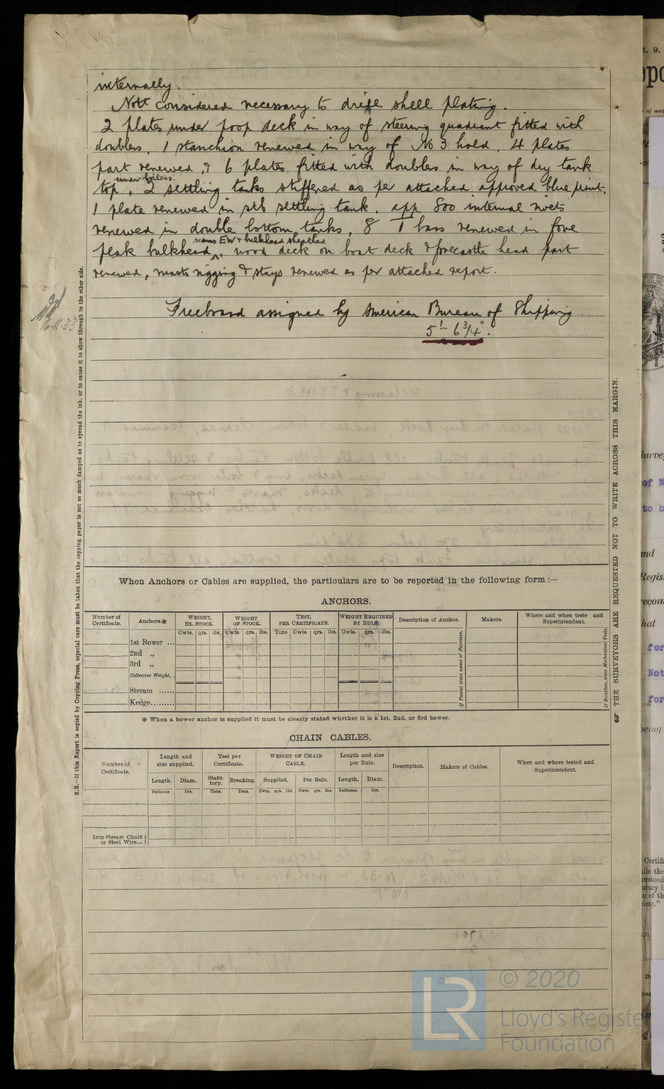 internally.
Not considered necessary to drill shell plating.
2 plates under poop deck in way of steering quadrant fitted with
doublers, 1 stanchion renewed in way of No 3 hold, 4 plates
part renewed, & 6 plates fitted with doublers in way of dry tank
under boilers.
top, 2 settling tanks stiffened as per attached approved blue print,
1 plate renewed in stb settling tank, app 800 internal rivets
renewed in double bottom tanks, 8 T bars renewed in fore
EW & bulkhead sheathed
peak bulkhead, wood deck on boat deck & forecastle head part
renewed, masts rigging & stays renewed as per attached report.
Freeboard assigned by American Bureau of Shipping
5'- 6 3/4".
N.B.—If this Report is copied by Copying Press, especial care must be taken that the copying paper is not so much damped as to spread the ink, or to cause it to show through to the other side.
☞ THE SURVEYORS ARE REQUESTED NOT TO WRITE ACROSS THIS MARGIN.
When Anchors or Cables are supplied, the particulars are to be reported in the following form :—
ANCHORS.
Number of Certificate. Anchors.* WEIGHT, EX. STOCK. WEIGHT OF STOCK. TEST, PER CERTIFICATE. WEIGHT REQUIRED BY RULE. Description of Anchor. Makers. Where and when tests and Superintendent.
Cwts. qrs. lbs. Cwts. qrs. lbs. Tons Cwts. qrs. lbs. Cwts. qrs. lbs.
1st Bower ...
2nd „
3rd „
Collective Weight,
Stream ......
Kedge.........
* When a bower anchor is supplied it must be clearly stated whether it is a 1st, 2nd, or 3rd bower.
CHAIN CABLES.
Number of Certificate. Length and size supplied. Test per Certificate. WEIGHT OF CHAIN CABLE. Length and size per Rule. Description. Makers of Cables. When and where tested and Superintendent.
Length. Diam. Statutory. Breaking. Supplied. Per Rule. Length. Diam.
Fathoms Ins. Tons. Tons. Cwts. qrs. lbs. Cwts. qrs. lbs. Fathoms. Ins.
Iron Stream Chain
or Steel Wire....
LR © 2020
Lloyd's Register
Foundation